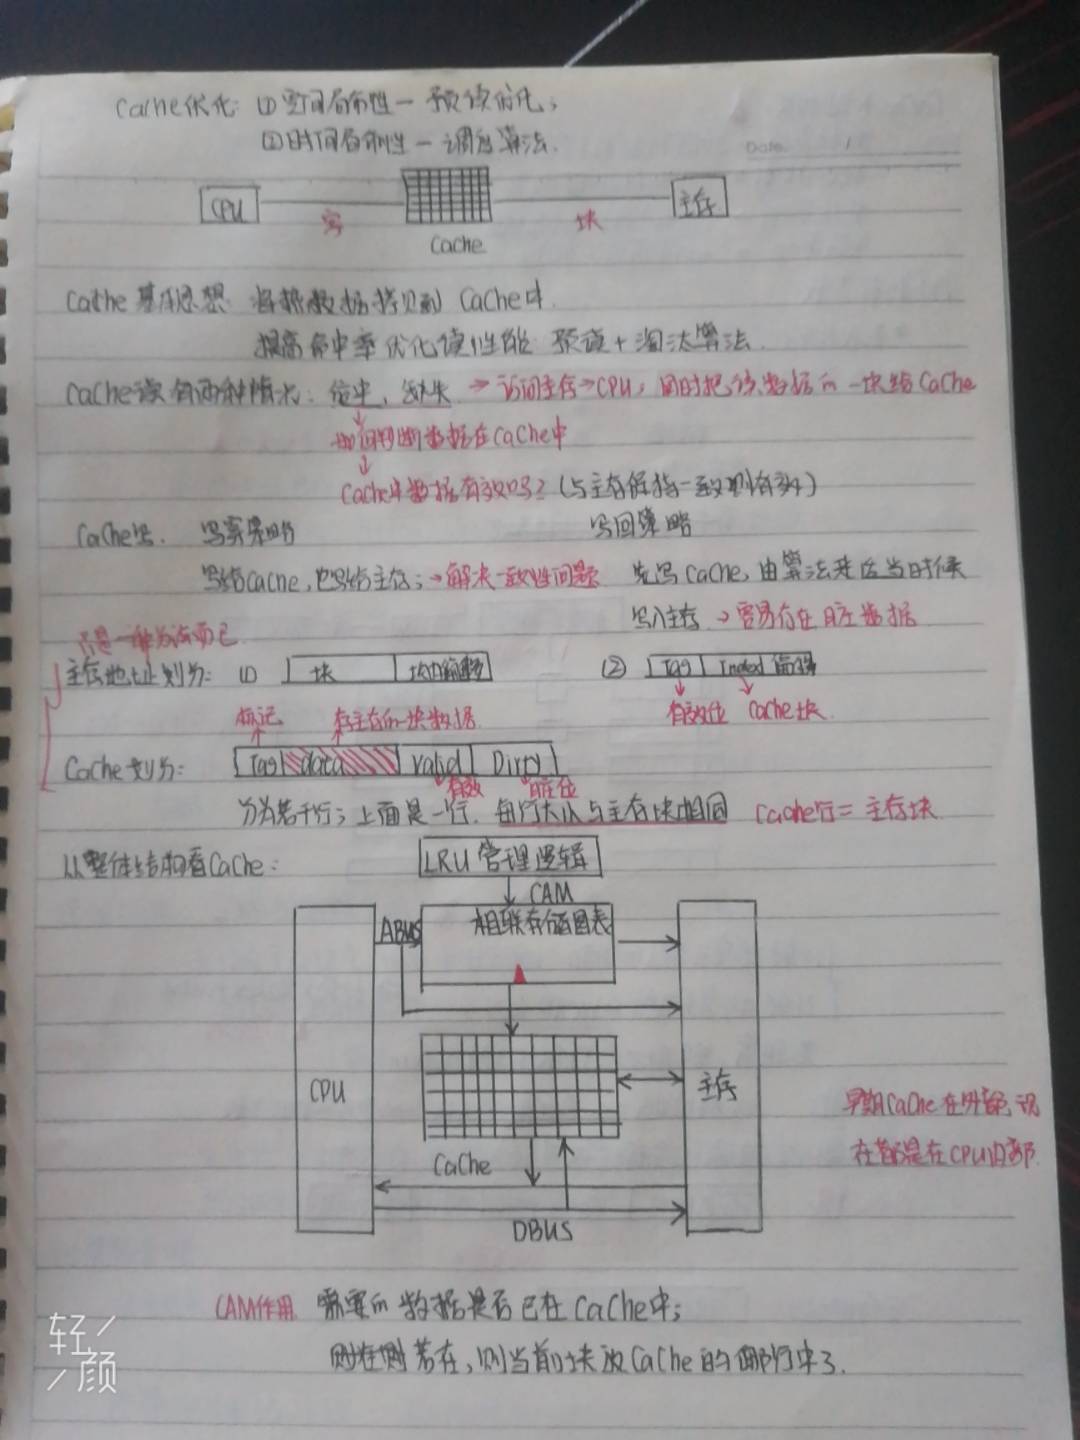 Cache优化: ①空间局部性一预读优化;
②时间局部性一调度算法.
Date. /
CPU 字 Cache 块 主存
Cache基本思想 将热数据拷贝到 Cache中.
提高命中率优化读性能 预读+淘汰算法.
Cache读有两种情况: 命中, 缺失 →访问主存→CPU, 同时把该数据的一块给Cache
如何判断数据在Cache中
Cache中数据有效吗? (与主存保持一致则有效)
Cache写. 写穿策略 写回策略
写给Cache, 也写给主存; →解决一致性问题 先写Cache, 由算法来适当时候
写入主存 →容易存在脏数据
只是一种方法而已
主存地址划分: (1) 块 块内偏移 (2) Tag Index 偏移
标记 存主存的一块数据. 有效位 Cache块.
Cache划分: Tag data Valid Dirty
有效 脏位
分为若干行; 上面是一行. 每行大小与主存块相同 Cache行= 主存块.
从整体结构看Cache:
LRU 管理逻辑
CAM
ABUS 相联存储图表
CPU 主存
早期Cache在外部, 现
在都是在CPU内部.
Cache
DBUS
CAM作用. 需要的数据是否已在Cache中;
若在, 则当前块放Cache的哪行中了.
轻颜